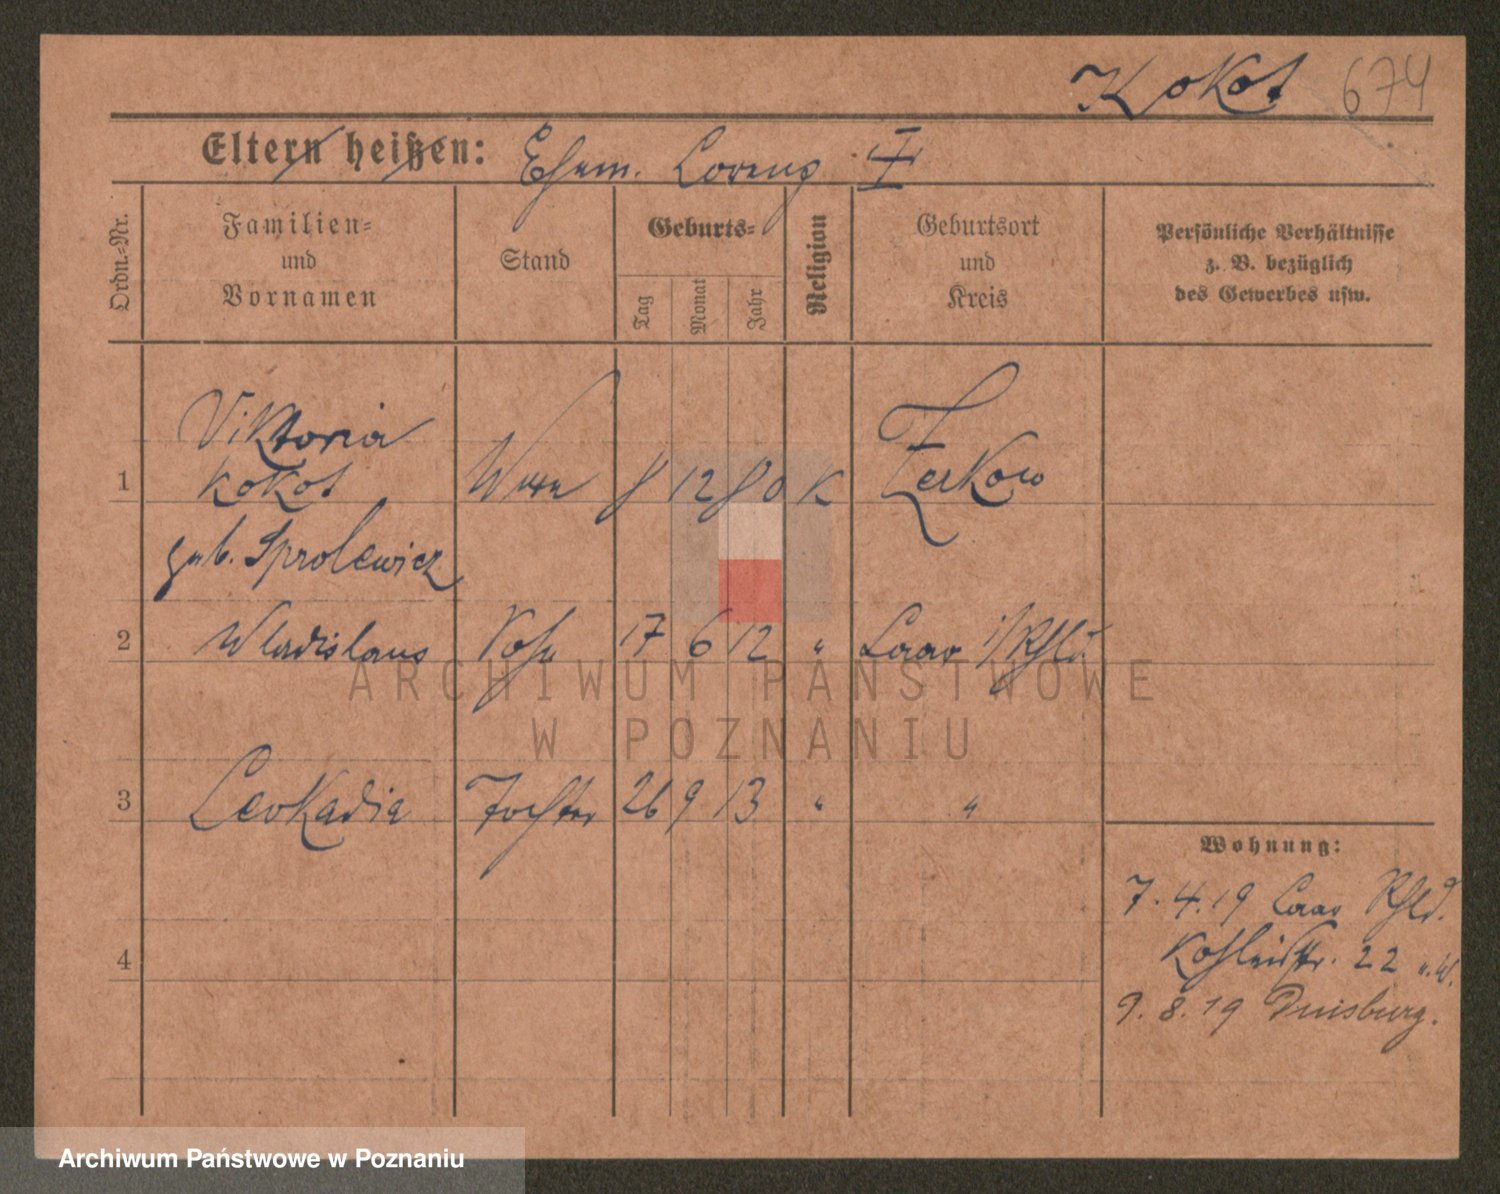 Kokot 674
Eltern heißen: Ehem. Lorenz
Ordn.-Nr.
Familien-
und
Vornamen
Stand
Geburts-
Tag
Monat
Jahr
Religion
Geburtsort
und
Kreis
Persönliche Verhältnisse
z. B. bezüglich
des Gewerbes usw.
Viktoria
1 Kokot Wwe 8 12 80 K Zerkow
geb. Sprolewicz
2 Wladislaus Sohn 17 6 12 " Laar i/Rhld
ARCHIWUM PAŃSTWOWE
W POZNANIU
3 Leokadia Tochter 26 9 13 " "
Wohnung:
7. 4. 19 Laar Rhld.
22
4
9. 8. 19 Duisburg.
Archiwum Państwowe w Poznaniu